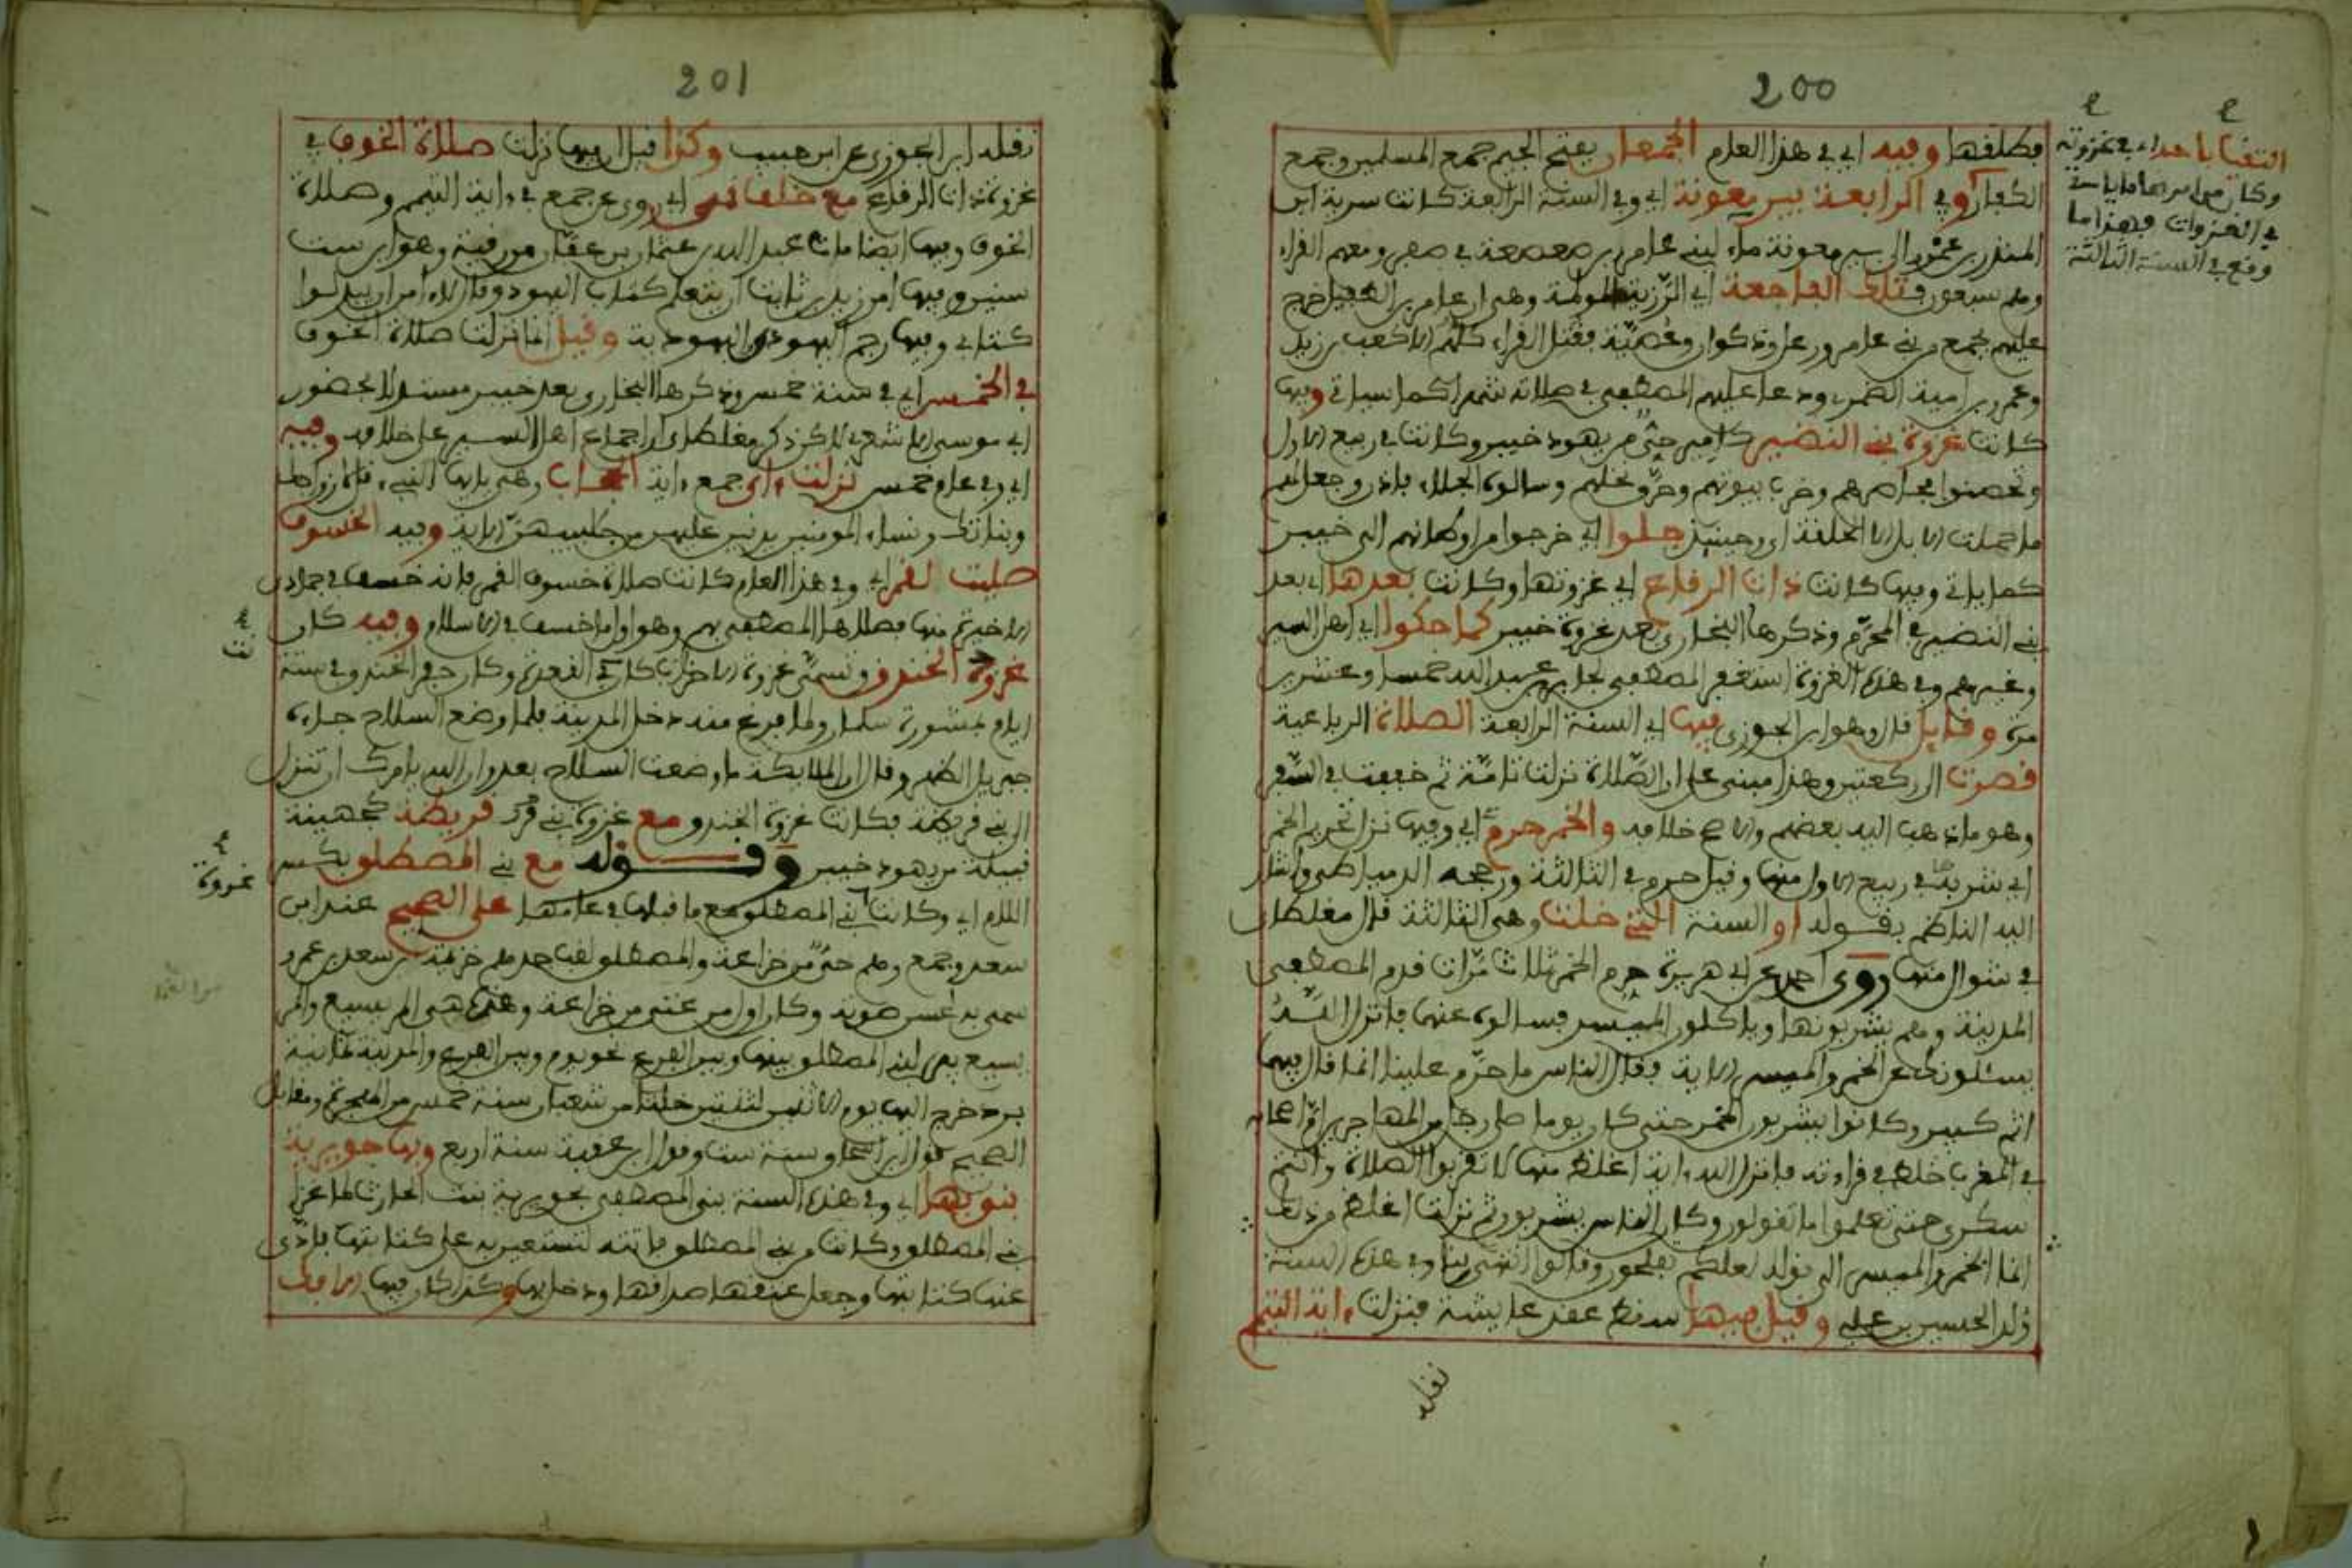 200
فطلقها وفيه اي في هذا العام الجمعان بفتح الجيم جمع المسلمين وجمع
التقيا باحد اي في غزوته
وكان من امرها ما ياتي
في الغزوات فهذا ما
وقع في السنة الثالثة
الكفار وفي الرابعة بير معونة اي وفي السنة الرابعة كانت سرية ابن
المنذر بن عمرو الى بير معونة ماء لبني عامر بن صعصعة في صفر ومعهم القراء
وهم سبعون فتلك الفاجعة اي الرزية المولمة وهي ان عامر بن الطفيل خرج
عليهم بجمع من بني عامر ورعل وذكوان وعصية فقتل القراء كلهم الا كعب بن زيد
وعمرو بن امية الضمري ودعا عليهم المصطفى في صلاته شهرا كما سياتي وفيها
كانت غزوة بني النضير كامير حي من يهود خيبر وكانت في ربيع الاول
وتحصنوا فحاصرهم وخرب بيوتهم وحرق نخلهم وسالوه الجلاء فاذن وجعل لهم
ما حملت الابل الا الحلقة اي وحينئذ جلوا اي خرجوا من اوطانهم الى خيبر
كما ياتي وفيها كانت ذات الرقاع اي غزوتها وكانت بعدها اي بعد
بني النضير في المحرم وذكرها البخاري بعد غزوة خيبر كما حكوا اي اهل السير
وغيرهم وفي هذه الغزوة استغفر المصطفى لجابر بن عبد الله خمسا وعشرين
مرة وقايل قال وهو ابن الجوزي فيها اي السنة الرابعة الصلاة الرباعية
قصرت الى ركعتين وهذا مبني على ان الصلاة نزلت تامة ثم خففت في السفر
وهو ما ذهب اليه بعضهم والاصح خلافه والخمر حرم اي وفيها نزل تحريم الخمر
اي شربها في ربيع الاول منها وقيل حرم في الثالثة ورجحه الدمياطي واشار
اليه الناظم بقوله او السنة التي خلت وهي الثالثة قال مغلطاي
في شوال منها روى احمد عن ابي هريرة حرم الخمر ثلاث مرات قدم المصطفى
المدينة وهم يشربونها وياكلون الميسر فسالوه عنها فانزل الله
يسئلونك عن الخمر والميسر الاية فقال الناس ما حرم علينا انما قال فيها
اثم كبير وكانوا يشربون الخمر حتى كان يوما صلى رجل من المهاجرين ام اصحابه
في المغرب خلط في قراءته فانزل الله اية اغلظ منها لا تقربوا الصلاة وانتم
سكرى حتى تعلموا ما تقولون وكان الناس يشربون ثم نزلت اغلظ من ذلك
انما الخمر والميسر الى قوله لعلكم تفلحون وقالوا انتهينا وفي هذه السنة
ولد الحسين بن علي وقيل فيها سقط عقد عايشة فنزلت اية التيمم
نقله
201
نقله ابن الجوزي عن ابن حبيب وكذا قيل ان فيها نزلت صلاة الخوف في
غزوة ذات الرقاع مع خلف نمي اي روي عن جمع في اية التيمم وصلاة
الخوف وفيها ايضا مات عبد الله بن عثمان بن عفان من رقية وهو ابن ست
سنين وفيها امر زيد بن ثابت ان يتعلم كتاب اليهود وقال لا امن ان يبدلوا
كتابي وفيها رجم اليهودي واليهودية وقيل انما نزلت صلاة الخوف
في الخمس اي في سنة خمس وذكرها البخاري بعد خيبر مستدلا بحضور
ابي موسى الاشعري لاكن ذكر مغلطاي ان اجماع اهل السير على خلافه وفيه
اي وفي عام خمس نزلت اي جمع اية الحجاب وهي يايها النبي قل لازواجك
وبناتك ونساء المومنين يدنين عليهن من جلابيبهن الاية وفيه الخسوف
صليت لقمر اي وفي هذا العام كانت صلاة خسوف القمر فانه خسف في جمادى
الاخيرة منها فصلاها المصطفى بهم وهو اول ما خسف في الاسلام وفيه كان
نت
غزوة الخندق وتسمى غزوة الاحزاب كان في القعدة وكان حفر الخندق في ستة
ايام بمشورة سلمان ولما فرغ منه دخل المدينة فلما وضع السلاح جاءه
جبريل الظهر وقال ان الملايكة ما وضعت السلاح بعد وان الله يامرك ان تنزل
الى بني قريظة فكانت غزوة الخندق مع غزوة بني قريظة كجهينة
غزوة
قبيلة من يهود خيبر وقوله مع بني المصطلق بكسر
اللام اي وكانت بني المصطلق مع ما قبلها في عامها على الصحيح عند ابن
سعد وجمع وهم حي من خزاعة والمصطلق لقب جدهم خزيمة بن سعد بن عمرو
سمي به لحسن صوته وكان اول من غنى من خزاعة وغزوتهم هي المريسيع والمر
يسيع ماء لبني المصطلق بينها وبين الفرع نحو يوم وبين الفرع والمدينة ثمانية
برد خرج اليها يوم الاثنين لليلتين خلتا من شعبان سنة خمس من الهجرة ومقابل
الصحيح قول ابن اسحاق سنة ست وقول ابن عقبة سنة اربع وبها جويرية
بنو بها اي وفي هذه السنة بنى المصطفى بجويرية بنت الحارث لما غزا
بني المصطلق وكانت من بني المصطلق فاتته لتستعين به على كتابتها فادى
عنها كتابتها وجعل عتقها صداقها ودخل بها وكذا كان فيها الافك